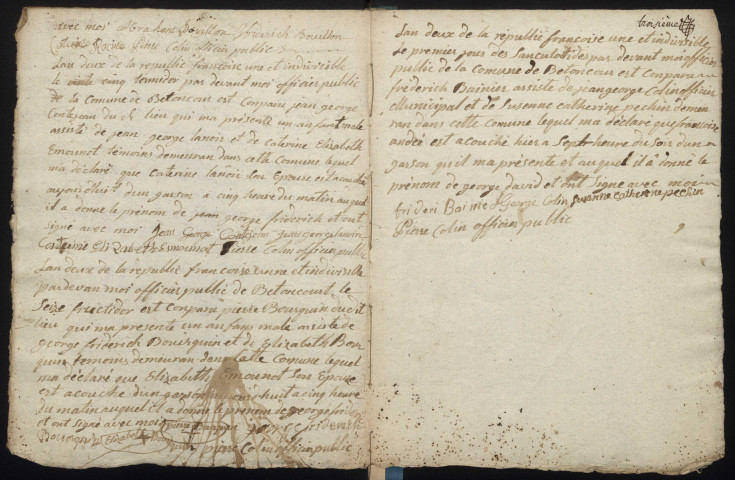 avec moi Abraham Bouillon friderich Bouillon
Pierre Colin officier public
Lan deux de la republic francoise une et indivisible
le cinq termidor par devant moi officier public
de la Comune de Betoncour est conparu jean george
Contejean du dit lieu qui ma présenté un anfant male
assisté de jean george lanoir et de caterine Elizabeth
Emounot témoins demeuran dans cette Comune lequel
ma déclaré que caterine lanoir son Epouse est acouché
aujourdhuit dun garson a cinq heure du matin auquel
il a donne le prénom de jean george friderich et ont
signe avec moi Jean George Contejean
Caterine Elizabeth Esmounot Pierre Colin officier public
Lan deux de la republic francoise une et indivisible
par devan moi officier public de Betoncourt, le
seize fructidor est conparu pierre Bourquin dudit
lieu qui ma presenté un anfans male assisté de
george friderich Bourquin et de Elizabeth Bour
quin temoins demeuran dans cette Comune lequel
ma déclaré que Elizabeth Emounot son Epouse
est acouche dun garson aujourdhuit a cinq heure
du matin auquel il a donne le prenom de george friderich
et ont signé avec moi pierre Bourquin george friderich
Bourquin Elizabeth Bour
quin pierre Colin officier public
Lan deux de la républic francoise une et indivisible
le premier jour des Sanculotides par devant moi officier
public de la Comune de Betoncour est Conparu
fréderich Bainier assisté de jean george Colin officier
Municipal et de Susenne catherine pechin demeu
ran dans cette Comune lequel ma déclaré que francoise
est acouché hier a Sept heure du soir dun
garson qu'il ma présenté et auquel il a donné le
prénom de george david et ont Signe avec moi
frideri Bainie George Colin Suzanne catherine pechin
Pierre Colin officier public